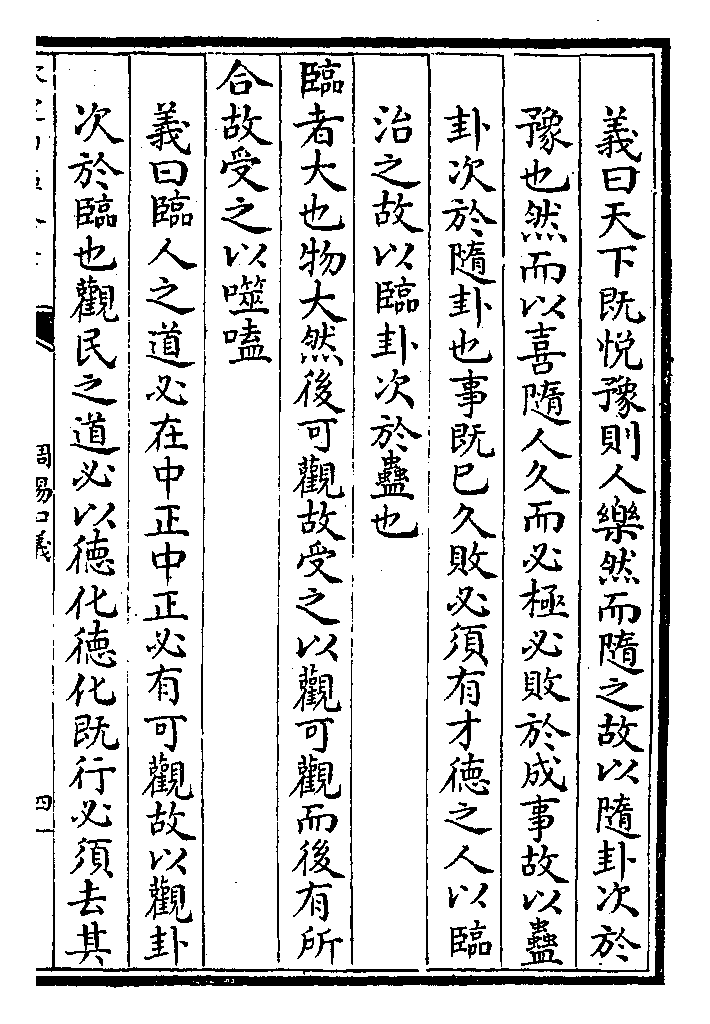 義曰天下既悅豫則人樂然而隨之故以隨卦次於
豫也然而以喜隨人久而必極必敗於成事故以蠱
卦次於隨卦也事既已久敗必須有才德之人以臨
治之故以臨卦次於蠱也
臨者大也物大然後可觀故受之以觀可觀而後有所
合故受之以噬嗑
義曰臨人之道必在中正中正必有可觀故以觀卦
次於臨也觀民之道必以德化德化既行必須去其
周易口義
四